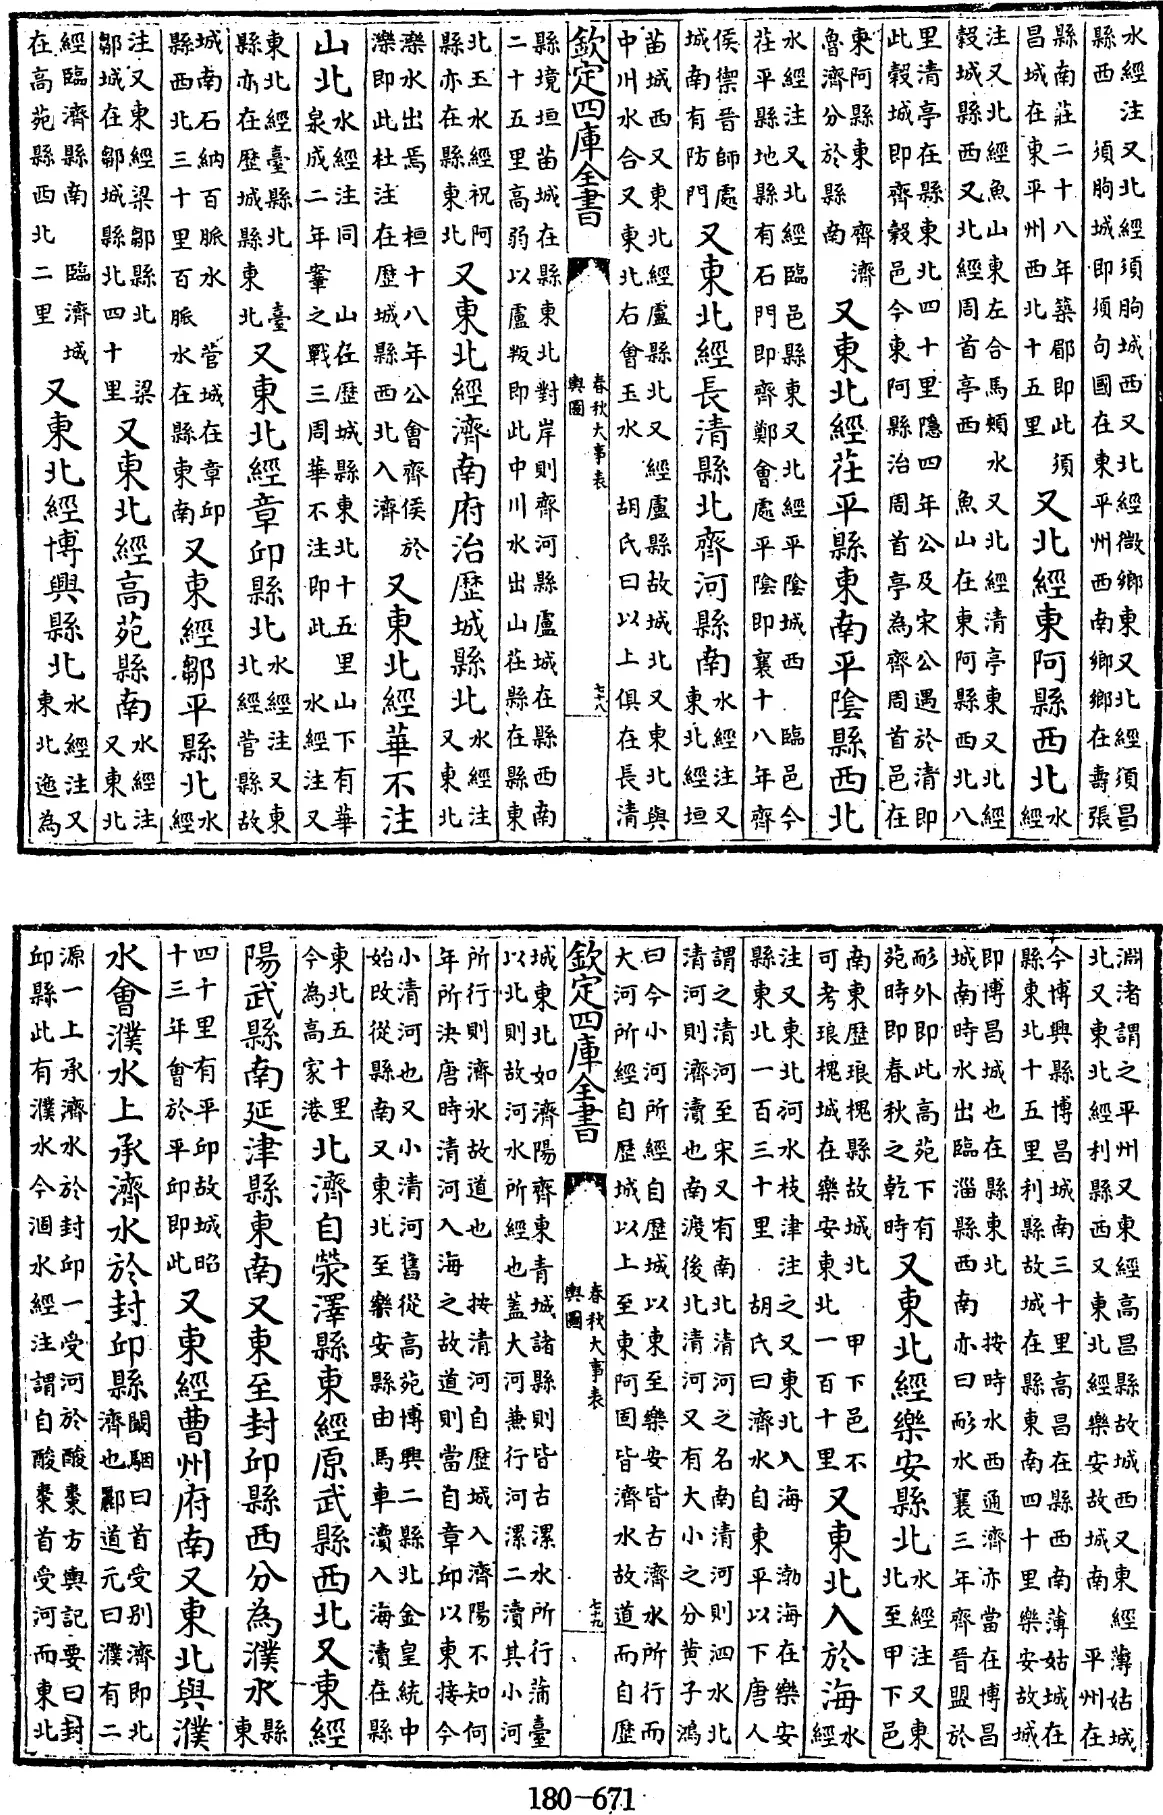 水經注又北經須朐城西又北經微鄉東又北經須昌
縣西　須朐城即須句國在東平州西南鄉鄉在壽張
縣南莊二十八年築郿即此須
昌城在東平州西北十五里
又北經東阿縣西北
水
經
注又北經魚山東左合馬頰水又北經清亭東又北經
穀城縣西又北經周首亭西　魚山在東阿縣西北八
里清亭在縣東北四十里隱四年公及宋公遇於清即
此穀城即齊穀邑今東阿縣治周首亭為齊周首邑在
東阿縣東　齊濟
魯濟分於縣南
又東北經茌平縣東南平陰縣西北
水經注又北經臨邑縣東又北經平陰城西　臨邑今
茌平縣地縣有石門即齊鄭會處平陰即襄十八年齊
侯禦晉師處
城南有防門
又東北經長清縣北齊河縣南
水經注又
東北經垣
苗城西又東北經盧縣北又經盧縣故城北又東北與
中川水合又東北右會玉水　胡氏曰以上俱在長清
欽定四庫全書
春秋大事表
輿圖
七十八
縣境垣苗城在縣東北對岸則齊河縣盧城在縣西南
二十五里高弱以盧叛即此中川水出山茌縣在縣東
北玉水經祝阿
縣亦在縣東北
又東北經濟南府治歷城縣北
水經注
又東北
濼水出焉　桓十八年公會齊侯於
濼即此杜注　在歷城縣西北入濟
又東北經華不注
山北
水經注同　山在歷城縣東北十五里山下有華
泉成二年鞌之戰三周華不注即此　水經注又
東北經臺縣北　臺
縣亦在歷城縣東北
又東北經章邱縣北
水經注又東
北經菅縣故
城南石納百脈水　菅城在章邱
縣西北三十里百脈水在縣東南
又東經鄒平縣北
水
經
注又東經梁鄒縣北　梁
鄒城在鄒城縣北四十里
又東北經高苑縣南
水經注
又東北
經臨濟縣南　臨濟城
在高苑縣西北二里
又東北經博興縣北
水經注又
東北迤為
淵渚謂之平州又東經高昌縣故城西又東經薄姑城
北又東北經利縣西又東北經樂安故城南　平州在
今博興縣博昌城南三十里高昌在縣西南薄姑城在
縣東北十五里利縣故城在縣東南四十里樂安故城
即博昌城也在縣東北　按時水西通濟亦當在博昌
城南時水出臨淄縣西南亦曰耏水襄三年齊晉盟於
耏外即此高苑下有
苑時即春秋之乾時
又東北經樂安縣北
水經注又東
北至甲下邑
南東歷琅槐縣故城北　甲下邑不
可考琅槐城在樂安東北一百十里
又東北入於海
水
經
注又東北河水枝津注之又東北入海　渤海在樂安
縣東北一百三十里　胡氏曰濟水自東平以下唐人
謂之清河至宋又有南北清河之名南清河則泗水北
清河則濟瀆也南渡後北清河又有大小之分黃子鴻
曰今小河所經自歷城以東至樂安皆古濟水所行而
大河所經自歷城以上至東阿固皆濟水故道而自歷
欽定四庫全書
春秋大事表
輿圖
七十九
城東北如濟陽齊東青城諸縣則皆古漯水所行蒲臺
以北則故河水所經也蓋大河兼行河漯二瀆其小河
所行則濟水故道也　按清河自歷城入濟陽不知何
年所決唐時清河入海之故道則當自章邱以東接今
小清河也又小清河舊從高苑博興二縣北金皇統中
始改從縣南又東北至樂安縣由馬車瀆入海瀆在縣
東北五十里
今為高家港
北濟自滎澤縣東經原武縣西北又東經
陽武縣南延津縣東南又東至封邱縣西分為濮水
縣
東
四十里有平邱故城昭
十三年會於平邱即此
又東經曹州府南又東北與濮
水會濮水上承濟水於封邱縣
闞駰曰首受別濟即北
濟也酈道元曰濮有二
源一上承濟水於封邱一受河於酸棗方輿記要曰封
邱縣此有濮水今涸水經注謂自酸棗首受河而東北
180-671